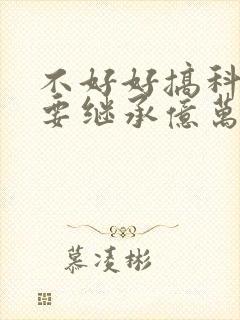 不好好搞科
要继承億萬
慕凌彬